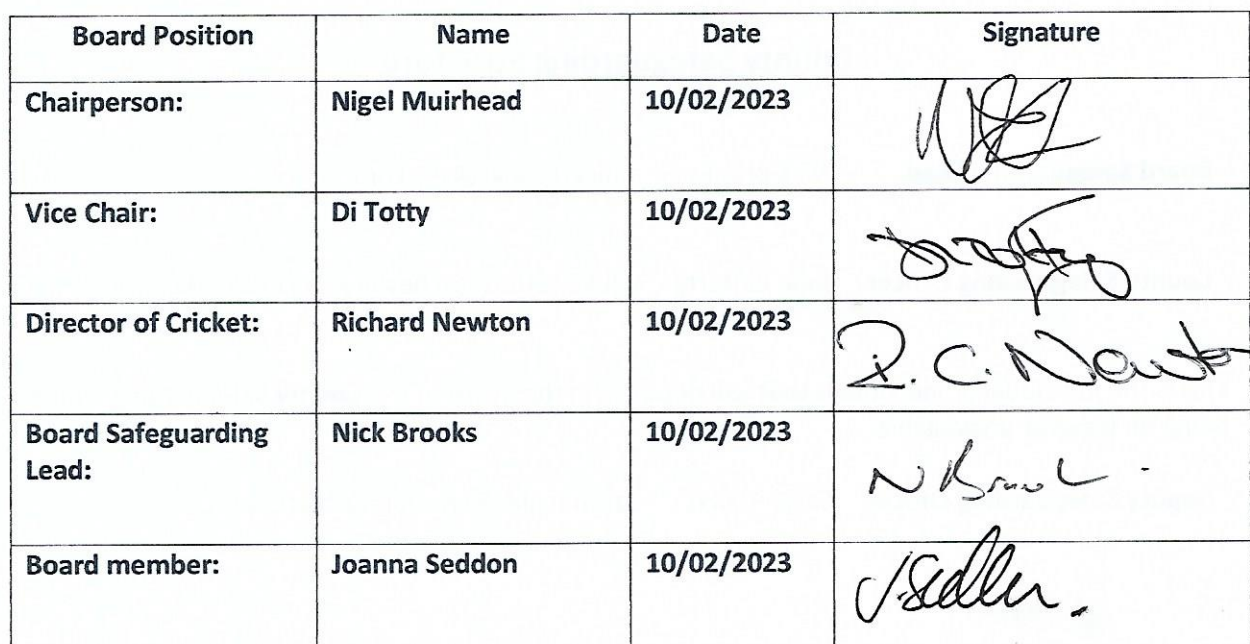 Board Position Name Date Signature
Chairperson: Nigel Muirhead 10/02/2023
Vice Chair: Di Totty 10/02/2023
Director of Cricket: Richard Newton 10/02/2023 R. C. Newton
Board Safeguarding Nick Brooks 10/02/2023 N Brook
Lead:
Board member: Joanna Seddon 10/02/2023 J. Seddon.